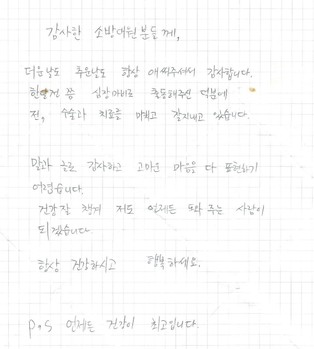 감사한 소방대원분들께,
더운날도 추운날도 항상 애써주셔서 감사합니다.
쯤 심장마비로 출동해주신 덕분에
전, 수술과 치료를 마치고 잘지내고 있습니다.
말과 글로 감사하고 고마운 마음을 다 표현하기
어렵습니다.
건강 잘 챙겨 저도 언제든 도와 주는 사람이
되겠습니다.
항상 건강하시고 행복하세요.
p.s 언제든 건강이 최고입니다.